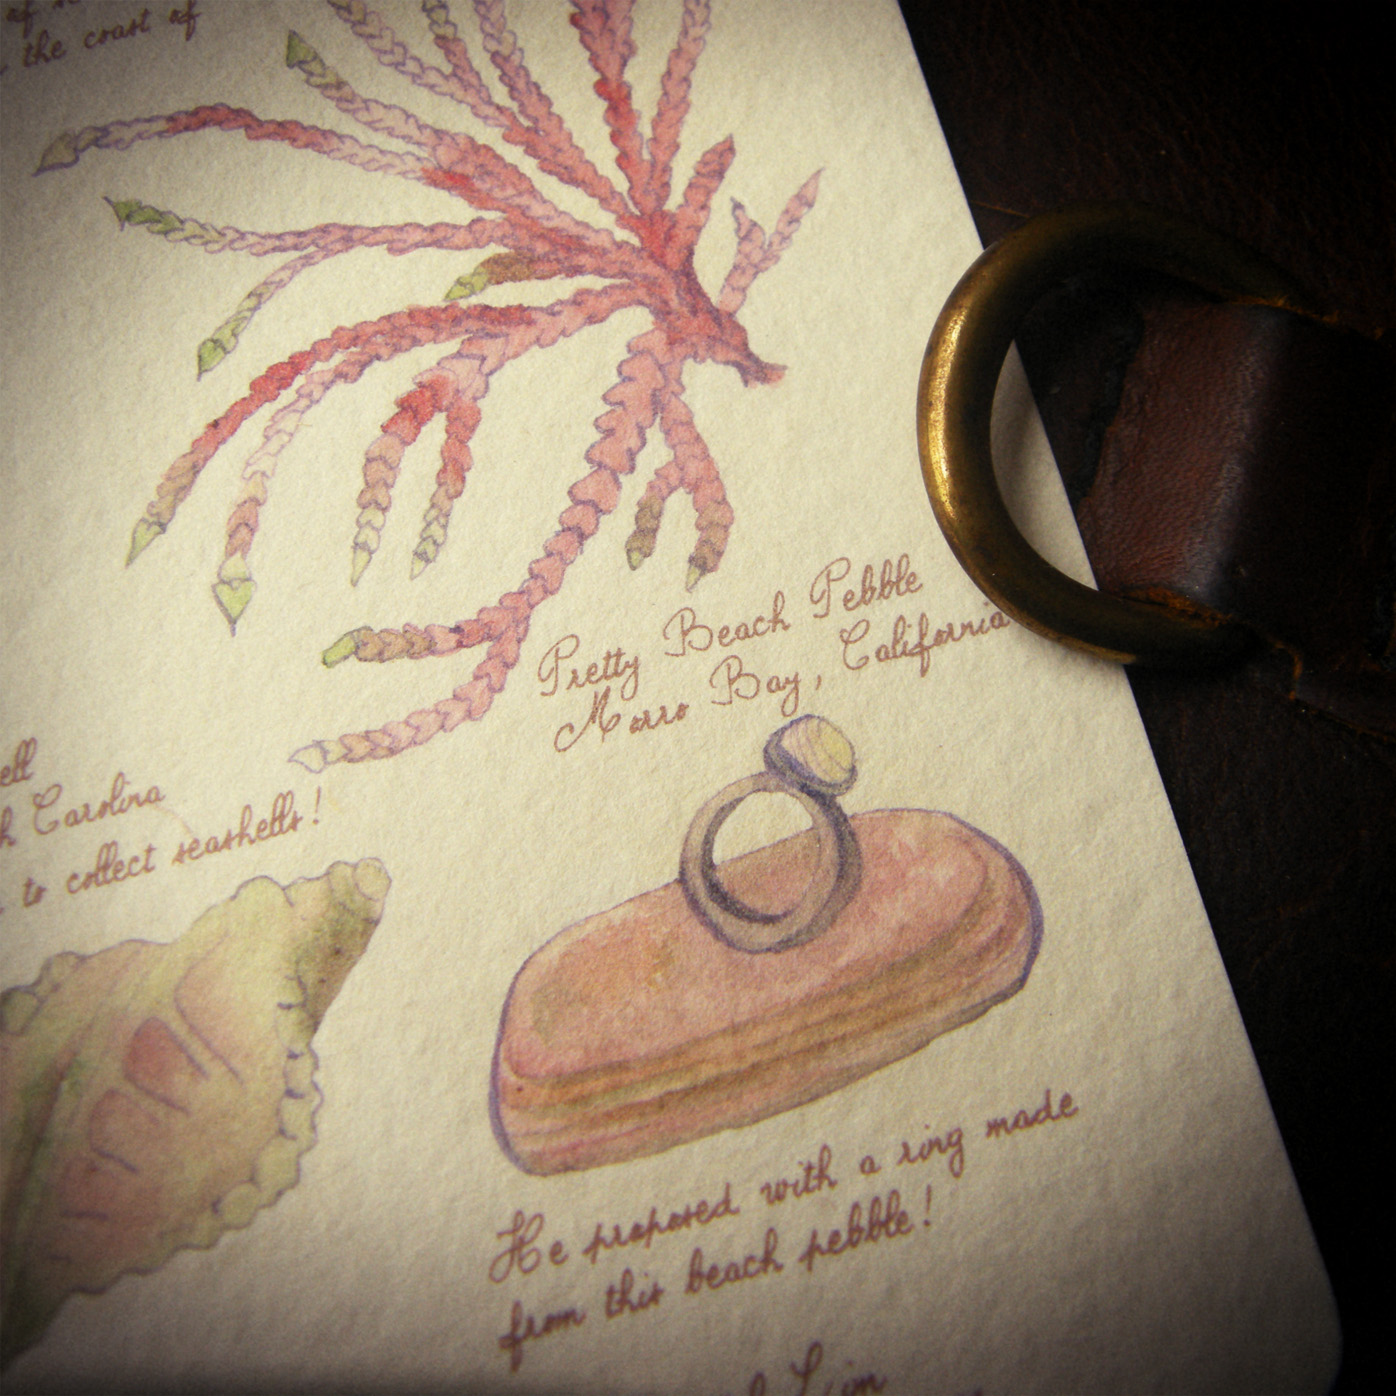 the coast of
Pretty Beach Pebble
Morro Bay, California
ell
h Carolina
to collect seashells!
He proposed with a ring made
from this beach pebble!